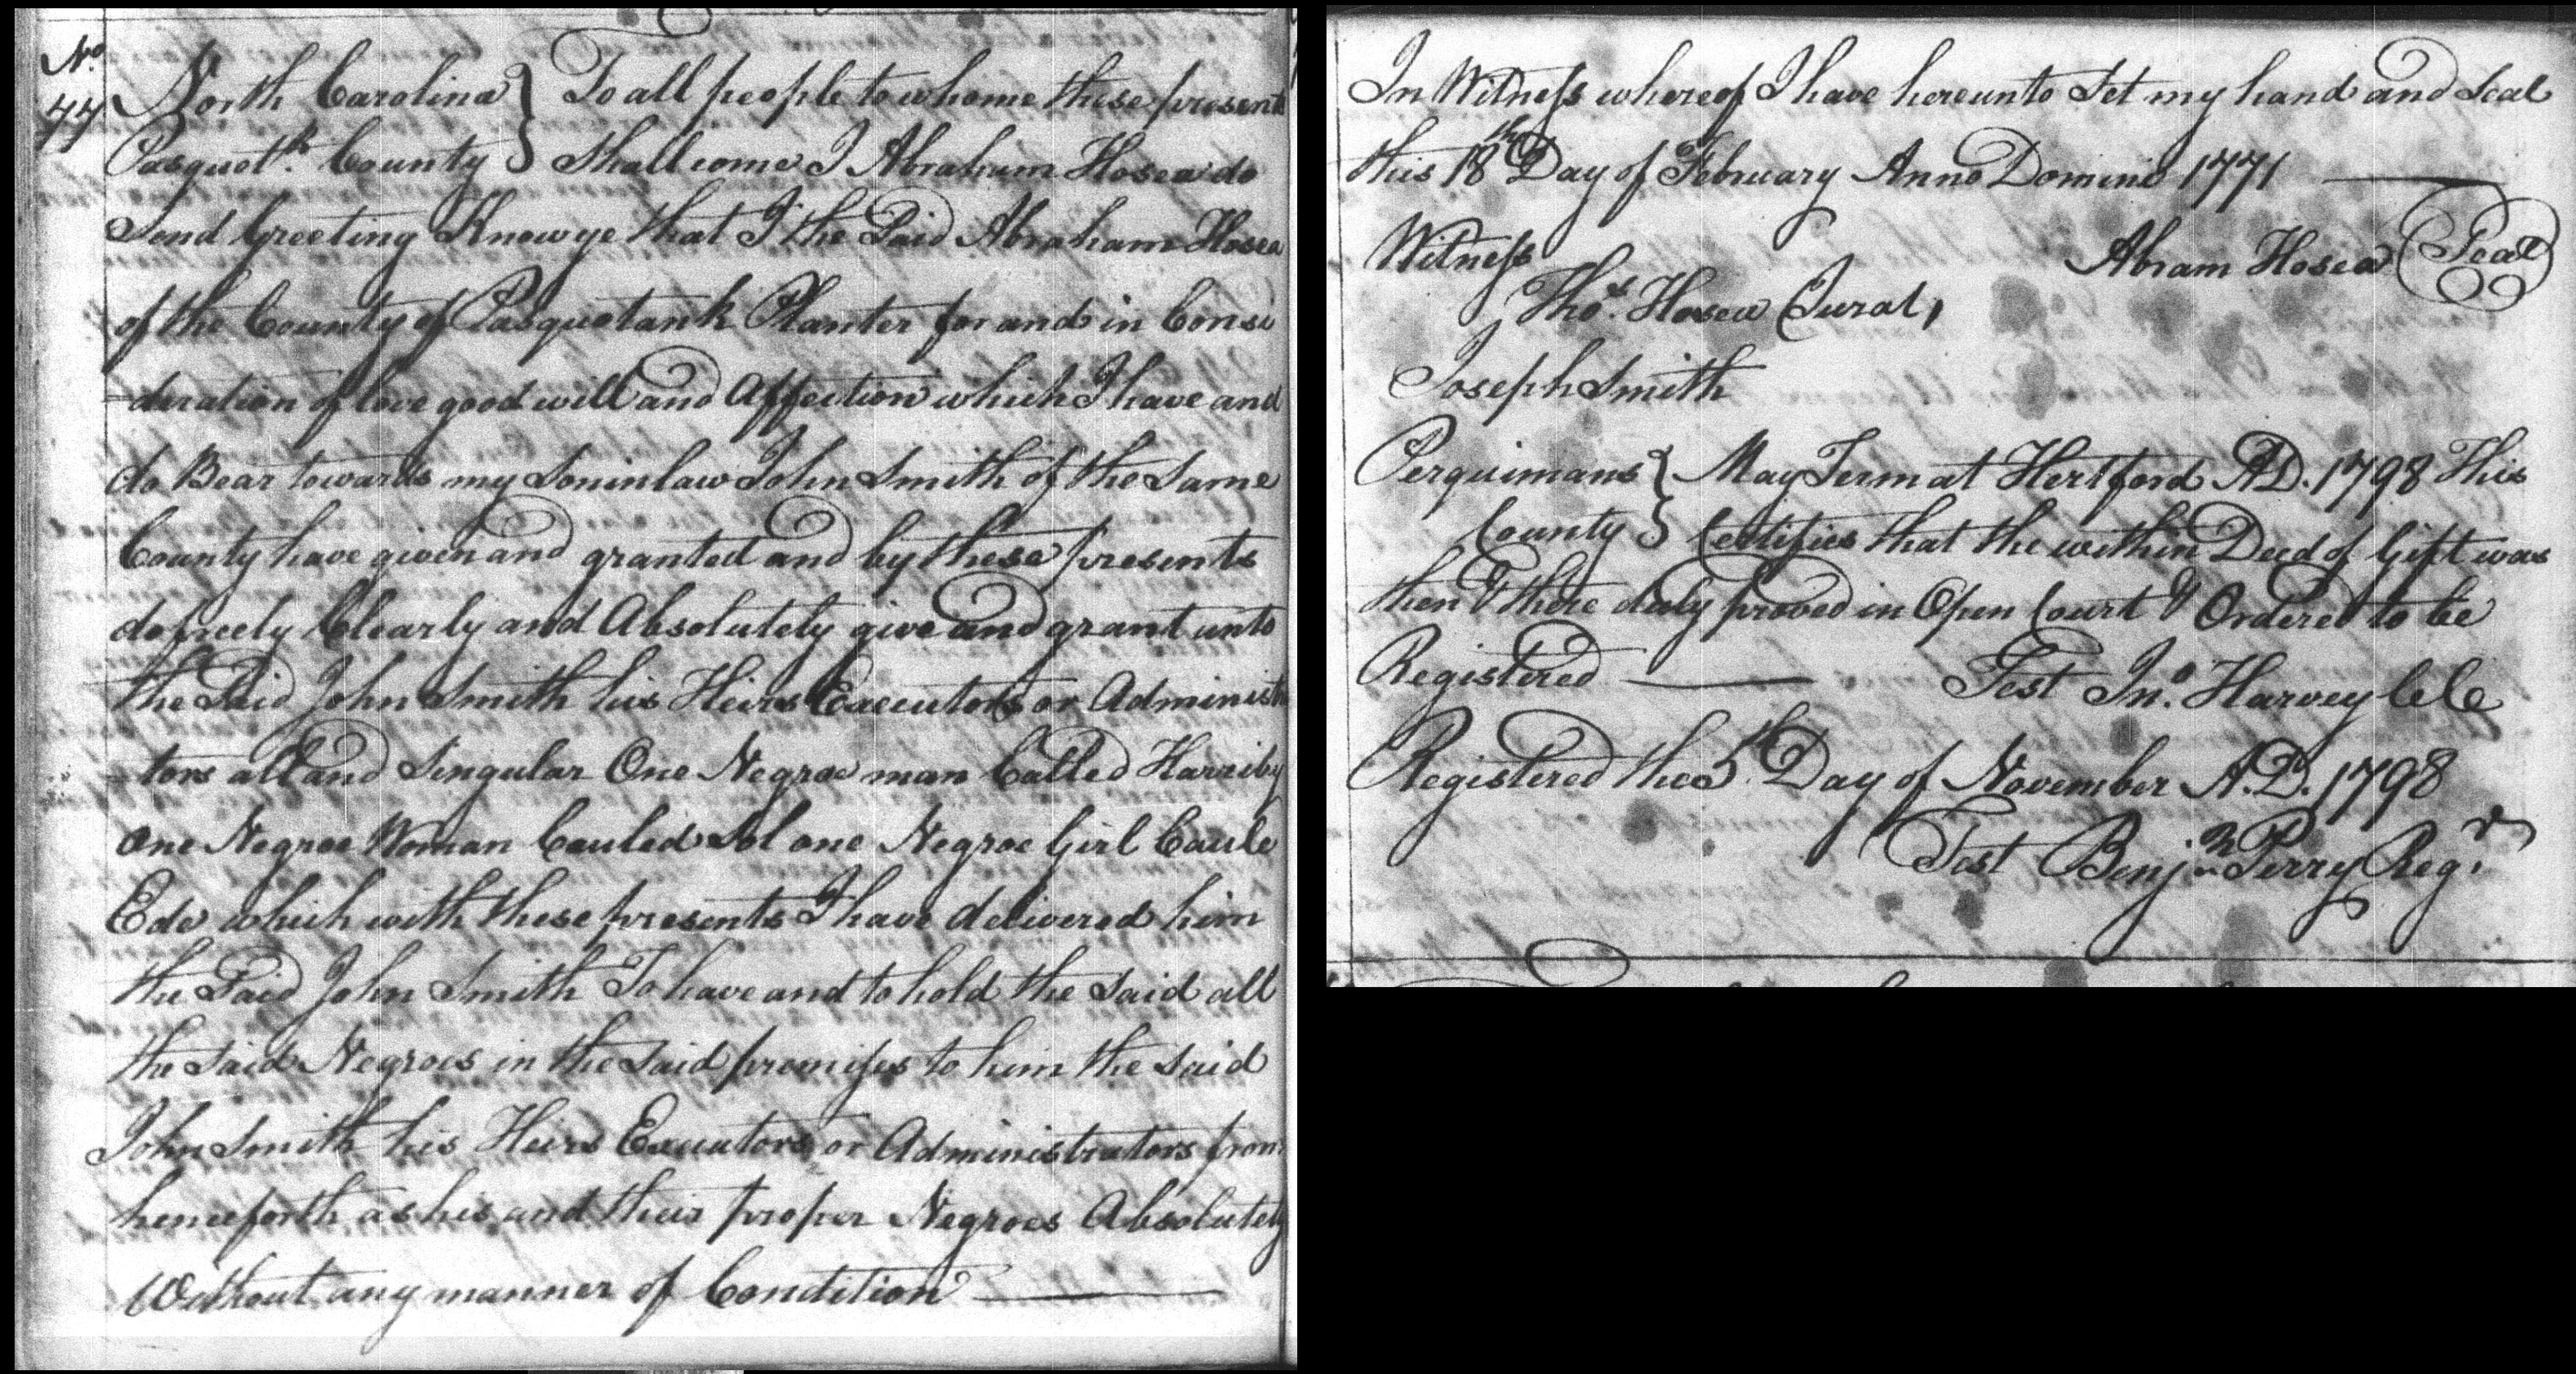 No.
77
North Carolina } To all people to whome these present
Pasquetk. County } Shall come I Abraham Hosea do
Send Greeting Know ye that I the Said Abraham Hosea
of the County of Pasquotank Planter for and in Consi
=deration of love good will and Affection which I have and
do Bear towards my Soninlaw John Smith of the Same
County have given and granted and by these presents
do freely Clearly and Absolutely give and grant unto
the Said John Smith his Heirs Executors or Administ
=tors all and Singular One Negroe man Called Harriby
One Negroe Woman Cauled Sol one Negroe Girl Caule
Ede which with these presents I have delivered him
the Said John Smith To have and to hold the Said all
the Said Negroes in the Said premises to him the Said
John Smith his Heirs Executors or Administrators from
henceforth as his and their proper Negroes Absolutely
Without any manner of Condition
In Witness whereof I have hereunto Set my hand and Seal
this 18th Day of February Anno Domini 1771
Witness Abram Hosea (Seal)
Thos. Hosea Jurat,
Joseph Smith
Perquimans } May Term at Hertford A.D. 1798 This
County } Certifies that the within Deed of Gift was
then & there duly proved in Open Court & Ordered to be
Registered Test Jno. Harvey ClC
Registered the 5th Day of November A.D. 1798
Test Benjn Perry Regr.